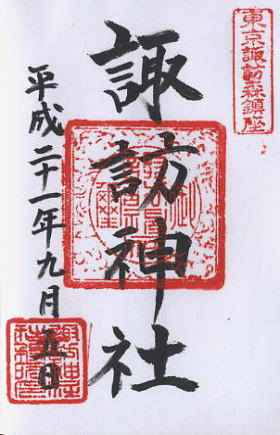 東京諏訪森鎮座
諏訪神社
平成二十一年九月五日